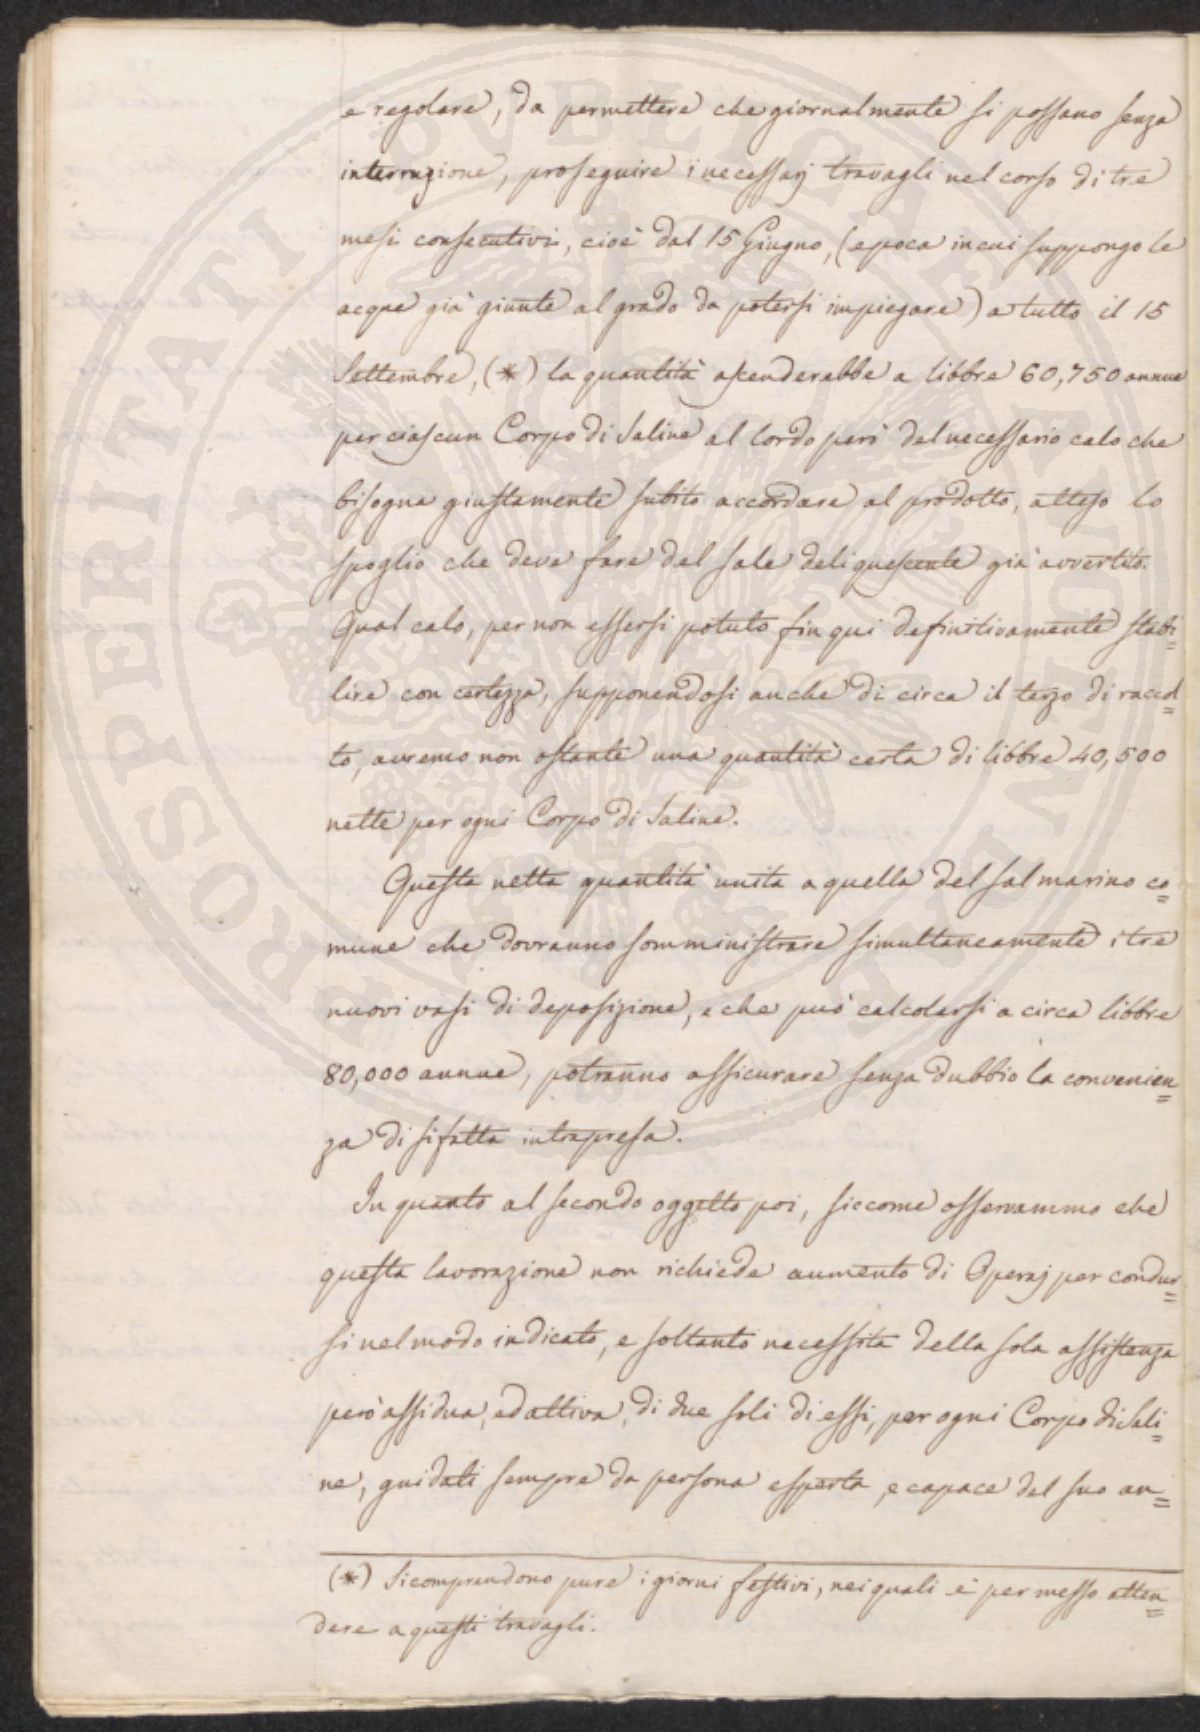 e regolare, da permettere che giornalmente si possano senza
interruzione, proseguire i necessarj travagli nel corso di tre
mesi consecutivi, cioè dal 15 Giugno, (epoca in cui suppongo le
acque già giunte al grado da potersi impiegare) a tutto il 15
Settembre, (*) la quantità ascenderebbe a libbre 60,750 annue
per ciascun Corpo di Saline al lordo però del necessario calo che
bisogna giustamente subito accordare al prodotto, atteso lo
spoglio che deve fare del sale deliquescente già avvertito.
Qual calo, per non essersi potuto fin qui definitivamente stabi=
lire con certezza, supponendosi anche di circa il terzo di raccol=
to, avremo non ostante una quantità certa di libbre 40,500
nette per ogni Corpo di Saline.
Questa netta quantità unita a quella del sal marino co=
mune che dovranno somministrare simultaneamente i tre
nuovi vasi di deposizione, e che può calcolarsi a circa libbre
80,000 annue, potranno assicurare senza dubbio la convenien=
za di sifatta intrapresa.
In quanto al secondo oggetto poi, siccome osservammo che
questa lavorazione non richiede aumento di Operaj per condur=
si nel modo indicato, e soltanto necessita della sola assistenza
però assidua, ed attiva, di due soli di essi, per ogni Corpo di Sali=
ne, guidati sempre da persona esperta, e capace del suo an=
(*) Si comprendono pure i giorni festivi, nei quali è permesso atten=
dere a questi travagli.
PROSPERITATI PVBLICAE AVGENDAE